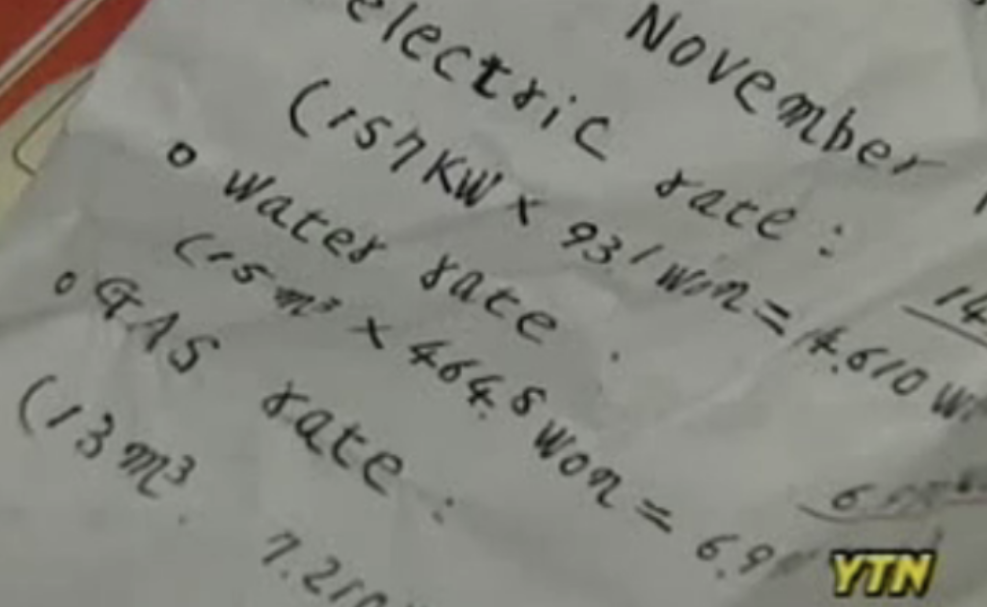 November
electric rate:
(157KW × 93.1 won = 14.610 W
14
o Water rate :
(15 m³ × 464.8 won = 6.9
6
o GAS rate :
(13 m³. 7.210
YTN